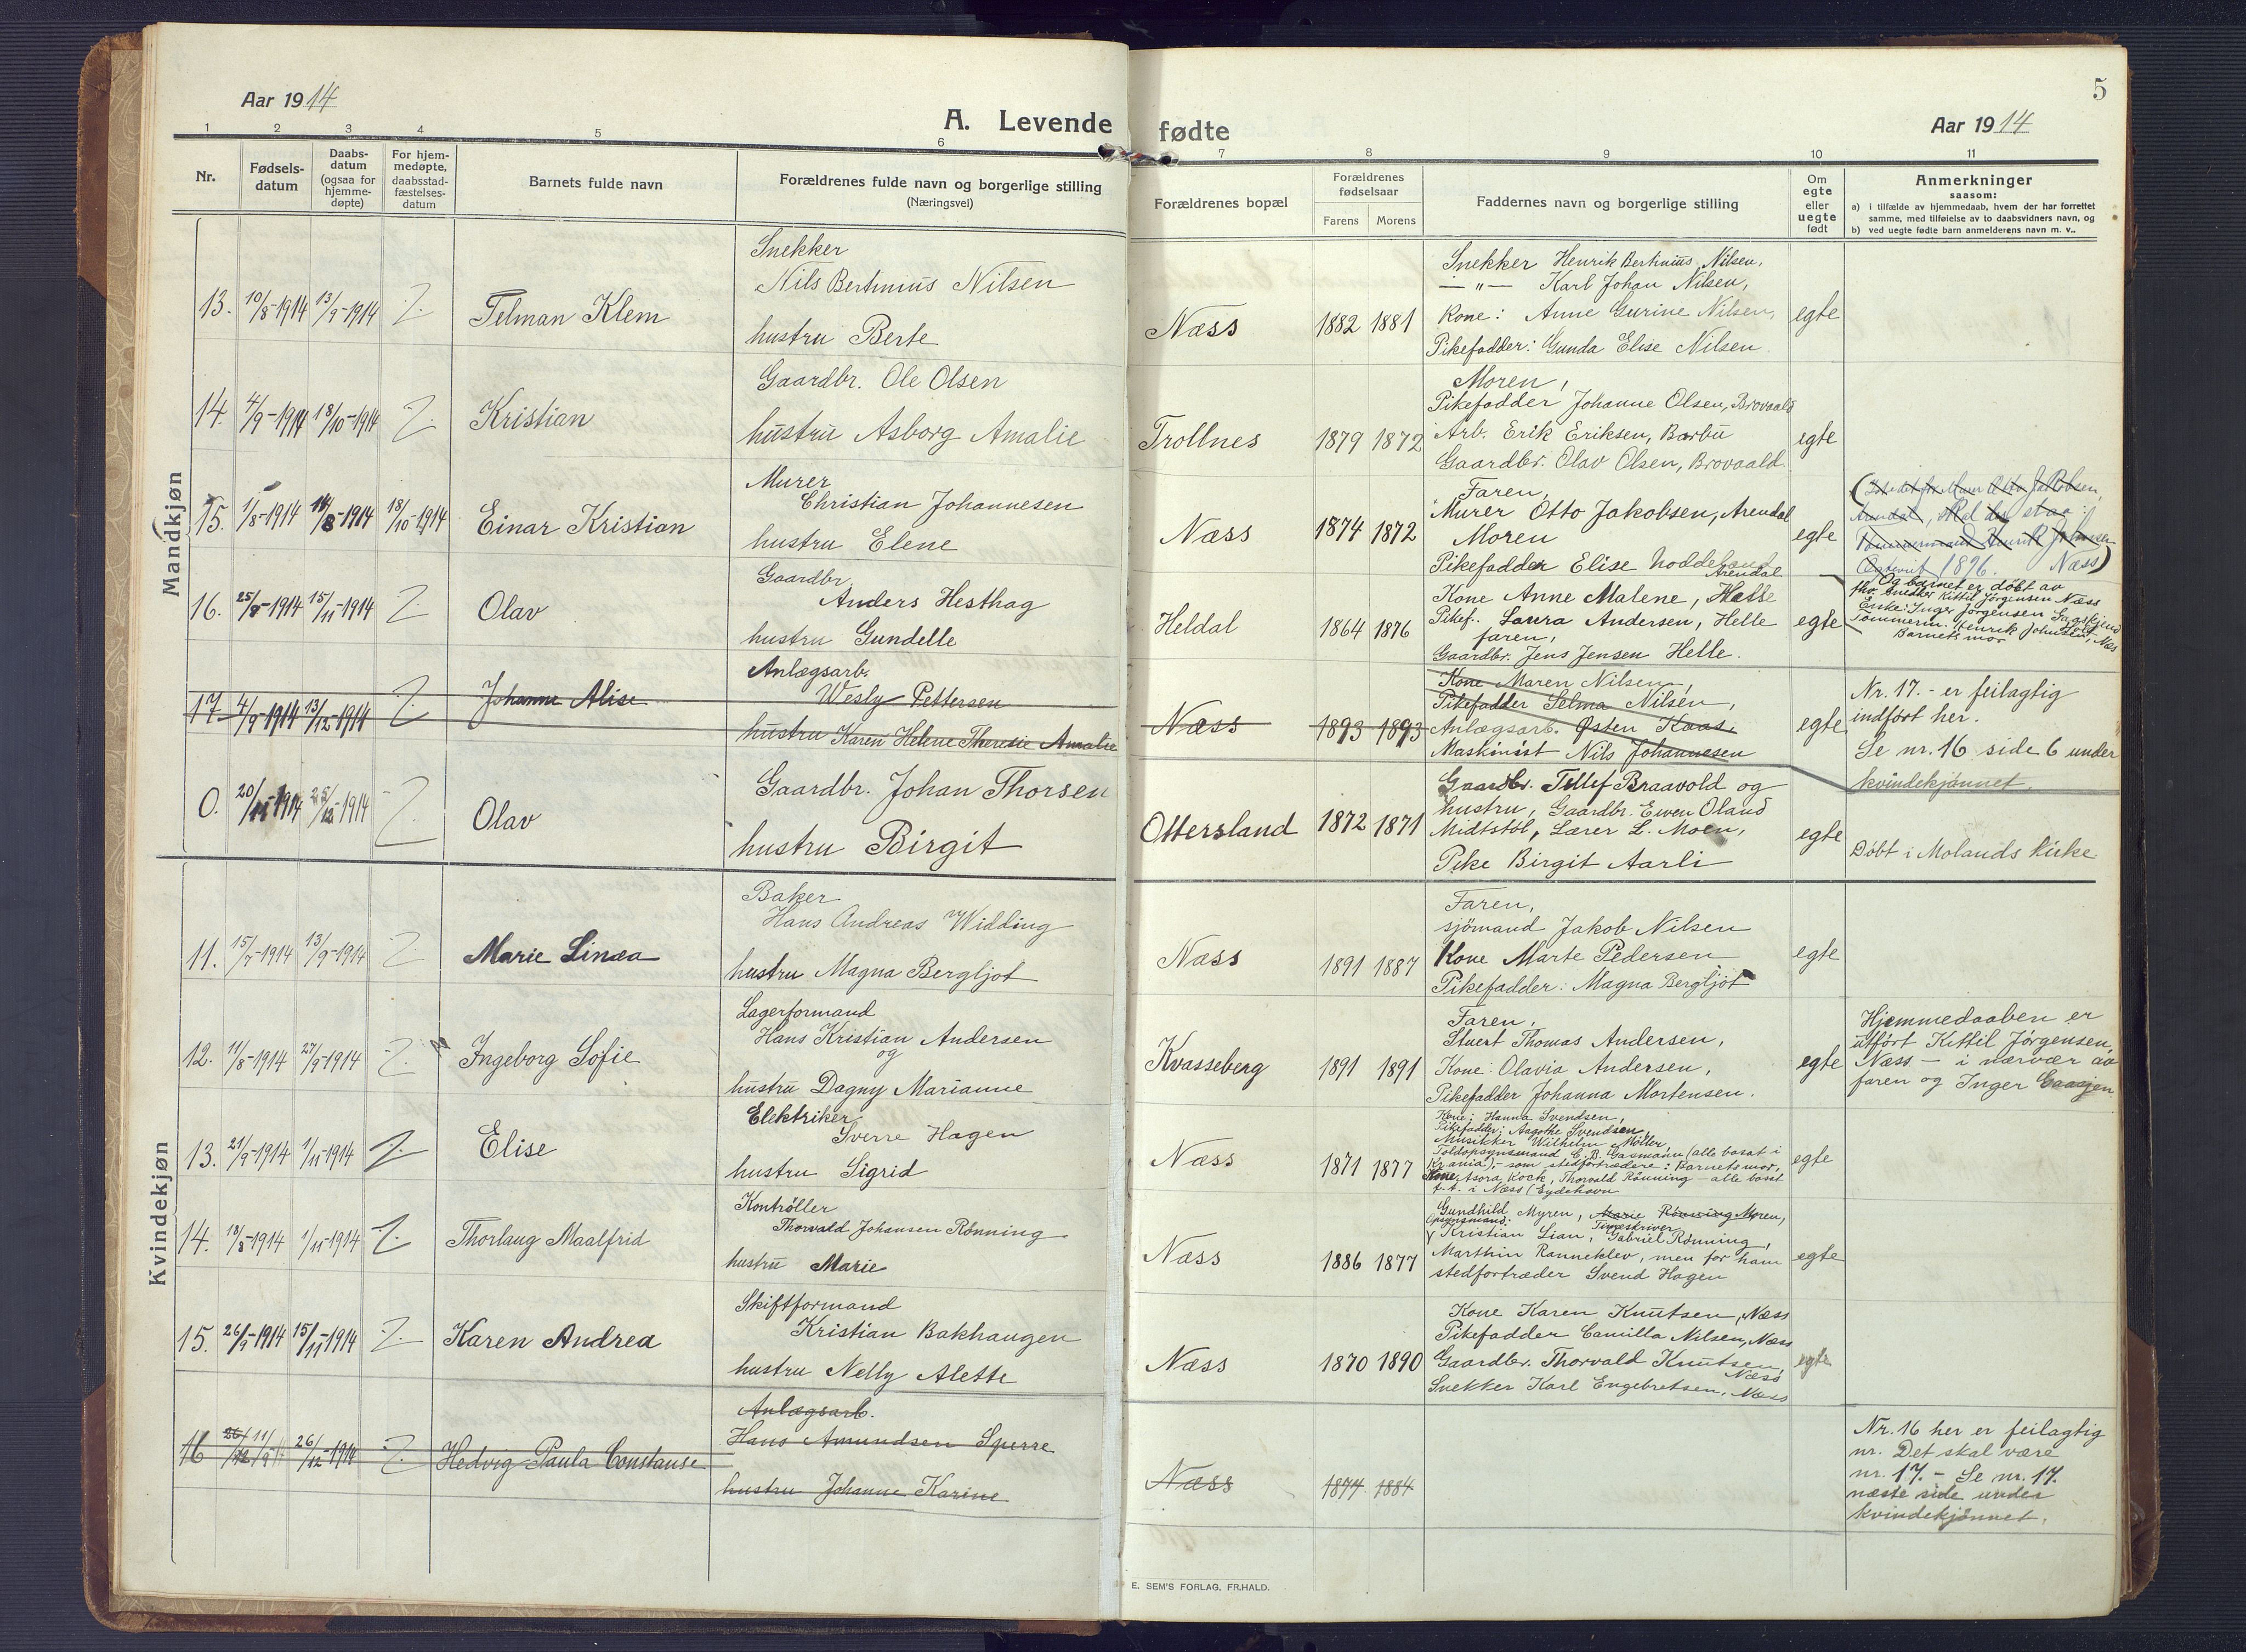 5
Aar 1914
A. Levende fødte
Aar 1914
1 2 3 4 5 6 7 8 9 10 11
Nr.
Fødsels-
datum
Daabs-
datum
(ogsaa for
hjemme-
døpte)
For hjem-
medøpte,
daabsstad-
fæstelses-
datum
Barnets fulde navn
Forældrenes fulde navn og borgerlige stilling
(Næringsvei)
Forældrenes bopæl
Forældrenes
fødselsaar
Farens Morens
Faddernes navn og borgerlige stilling
Om
egte
eller
uegte
født
Anmerkninger
saasom:
a) i tilfælde av hjemmedaab, hvem der har forrettet
samme, med tilføielse av to daabsvidners navn, og
b) ved uegte fødte barn anmelderens navn m. v..
Mandkjøn
13. 10/8-1914 13/9-1914 Telman Klem
Snekker
Nils Bertinius Nilsen
hustru Berte
Næss 1882 1881
Snekker Henrik Bertinius Nilsen,
— " — Karl Johan Nilsen,
Kone: Anne Gurine Nilsen,
Pikefadder: Gunda Elise Nilsen
egte
14. 4/9-1914 18/10-1914 Kristian
Gaardbr. Ole Olsen
hustru Asborg Amalie
Trollnes 1879 1872
Moren,
Pikefadder Johanne Olsen, Brovaald
Arb. Erik Eriksen, Barbu
Gaardbr. Olav Olsen, Brovaald
egte
15. 1/8-1914 14/8-1914 18/10-1914 Einar Kristian
Murer
Christian Johannesen
hustru Elene
Næss 1874 1872
Faren,
Murer Otto Jakobsen, Arendal
Moren
Pikefadder Elise Noddeland
Arendal
egte
Arendal, skal der staa:
Tømmermand Henrik Johnsen
1896. Næss)
Og barnet er døbt av
fhv. Snedker Kittil Jørgensen Næss
Enke: Inger Jørgensen
Tømmerm. Henrik Johnsen, Næs
Barnets mor
16. 25/8-1914 15/11-1914 Olav
Gaardbr.
Anders Hesthag
hustru Gundelle
Heldal 1864 1876
Kone Anne Malene, Helle
Pikef. Laura Andersen, Helle
faren,
Gaardbr. Jens Jensen Helle.
egte
17 4/9-1914 13/12-1914 Johanne Alise
Anlægsarb.
Wesly Pettersen
hustru Karen Helene Theresie Amalie
Næss 1893 1893
Kone Maren Nilsen,
Pikefadder Selma Nilsen,
Anlægsarb. Østen Kaas,
Maskinist Nils Johannesen
egte
Nr. 17. - er feilagtig
indført her.
Se nr. 16 side 6 under
kvindekjønnet.
0. 20/11-1914 25/12-1914 Olav
Gaardbr. Johan Thorsen
hustru Birgit
Ottersland 1872 1871
Gaardbr. Tellef Braavold og
hustru, Gaardbr. Even Oland
Midtstøl, Lærer L. Moen,
Pike Birgit Aarli
egte
Døbt i Molands kirke
Kvindekjøn
11. 15/7-1914 13/9-1914 Marie Linea
Baker
Hans Andreas Widding
hustru Magna Bergljot
Næss 1891 1887
Faren,
sjømand Jakob Nilsen
Kone Marte Pedersen
Pikefadder: Magna Bergljot
egte
12. 11/8-1914 27/9-1914 Ingeborg Sofie
Lagerformand
Hans Kristian Andersen
og
hustru Dagny Marianne
Kvasseberg 1891 1891
Faren,
Stuert Thomas Andersen,
Kone: Olavia Andersen,
Pikefadder Johanna Mortensen.
egte
Hjemmedaaben er
utført Kittil Jørgensen,
Næss - i nærvær av
faren og Inger
13. 21/9-1914 1/11-1914 Elise
Elektriker
Sverre Hagen
hustru Sigrid
Næss 1871 1877
Kone: Hanna Svendsen,
Pikefadder: Aagothe Svendsen,
Musikker Wilhelm Møller,
Toldopsynsmand C. B. Gasmann (alle bosat i
Kr.ania), - som stedfortrædere: Barnets mor,
Kone Asora Kock, Thorvald Rønning - alle bosat
f. t. i Næss (Eydehavn
egte
14. 18/8-1914 1/11-1914 Thorlaug Maalfrid
Kontrollør
Thorvald Johansen Rønning
hustru Marie
Næss 1886 1877
Gundhild Myren, Marie Rønning Moren,
Opsynsmand: Timeskriver
Kristian Lian, Gabriel Rønning,
Marthin Ranneklev, men for ham
stedfortræder Svend Hagen
egte
15. 26/9-1914 15/11-1914 Karen Andrea
Skiftformand
Kristian Bakhaugen
hustru Nelly Alette
Næss 1870 1890
Kone Karen Knutsen, Næss
Pikefadder Camilla Nilsen, Næss
Gaardbr. Thorvald Knutsen,
Næss
Snekker Karl Engebretsen, Næss
egte
16 26/12 11/9 26/12-1914 Hedvig Paula Constanse
Anlægsarb.
Hans Amundsen Sperre
hustru Johanne Karine
Næss 1874 1884
Nr. 16 her er feilagtig
nr. Det skal være
nr. 17. - Se nr. 17.
næste side under
kvindekjønnet.
E. SEM'S FORLAG, FR.HALD.